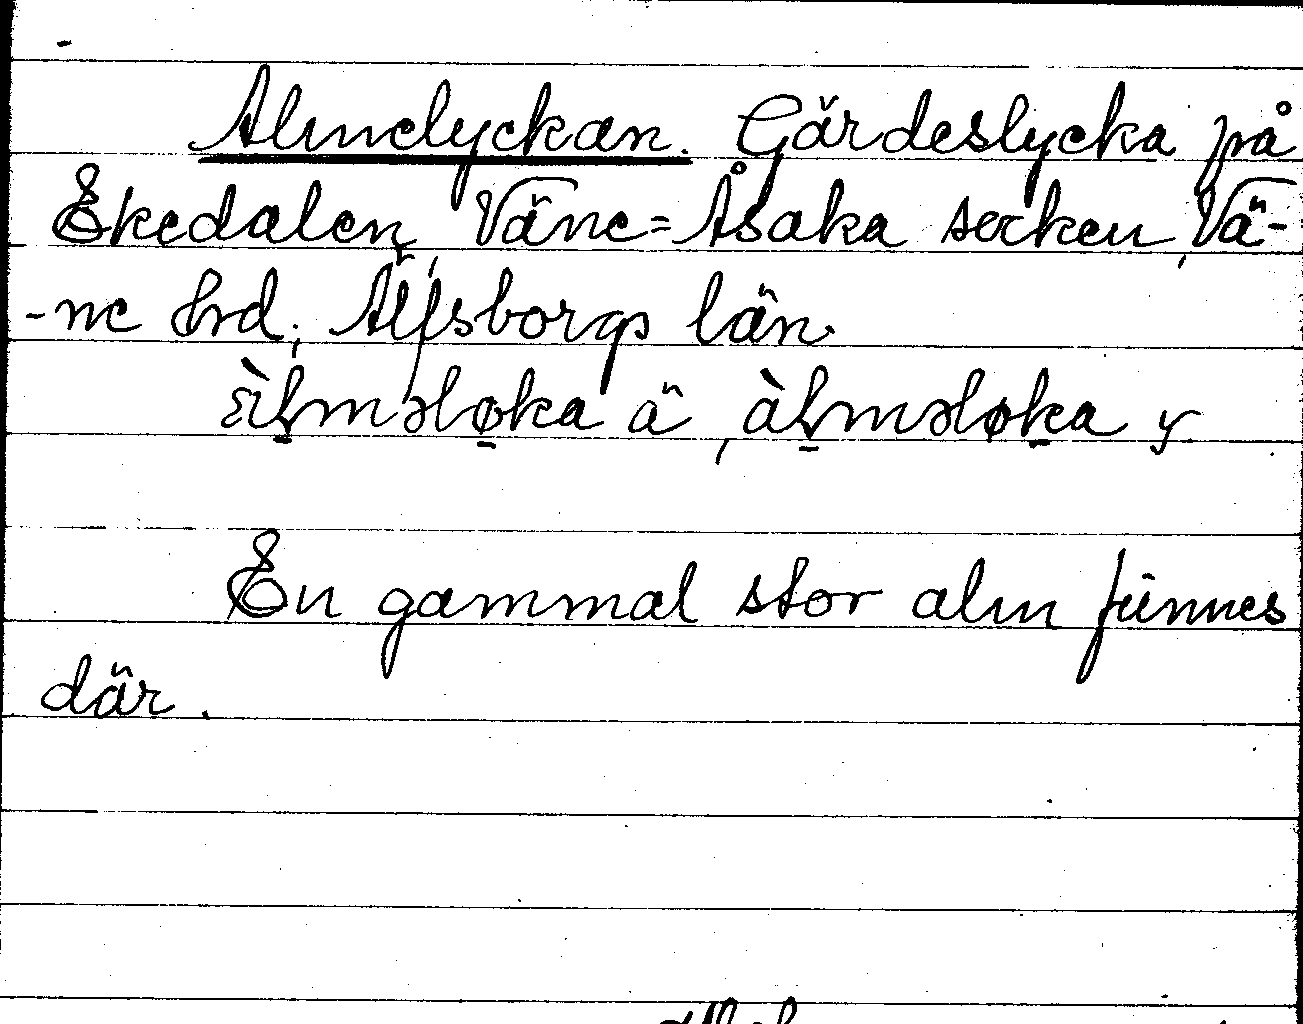 Almelyckan. Gärdeslycka på
Ekedalen, Väne=Åsaka socken, Vä-
-ne hrd, Älfsborgs län.
àl̠məlø̠ka ä, àl̠mələk̠a y
En gammal stor alm finnes
där.